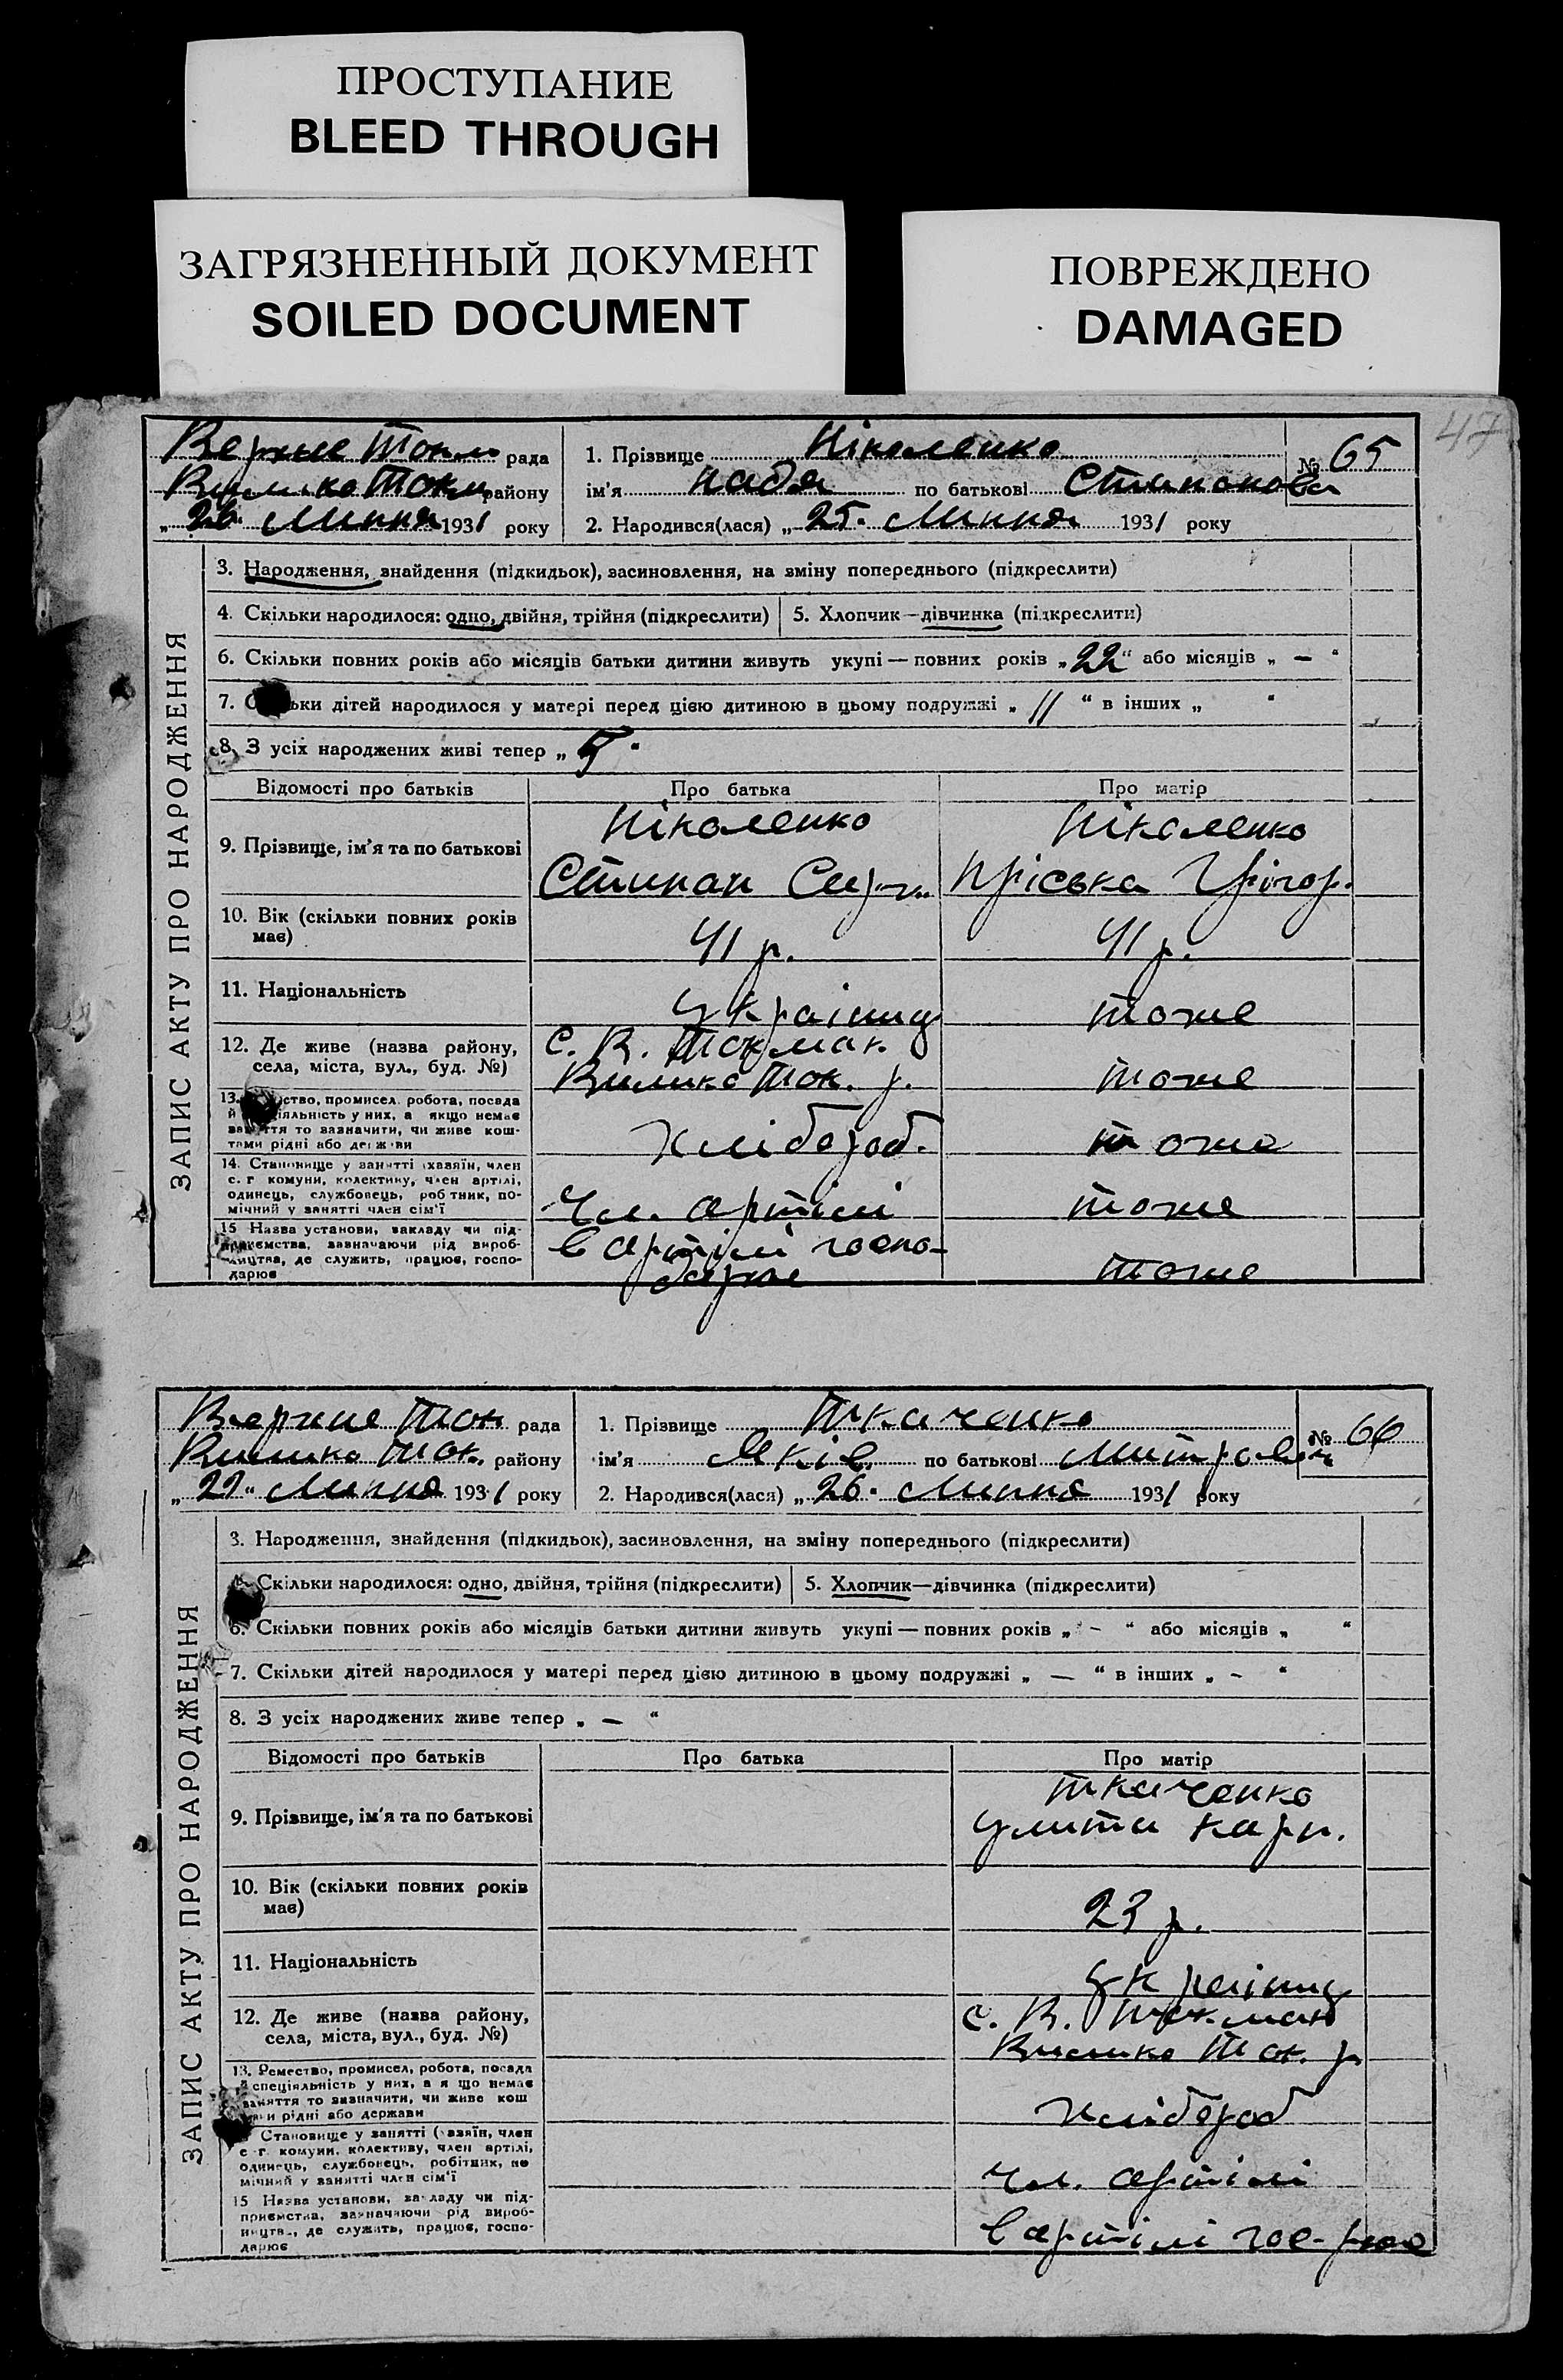 ПРОСТУПАНИЕ
BLEED THROUGH
ЗАГРЯЗНЕННЫЙ ДОКУМЕНТ
SOILED DOCUMENT
ПОВРЕЖДЕНО
DAMAGED
47
Верхне Токм рада
1. Прізвище Ніколенко
№ 65
Велико Токм району
ім'я Надя по батькові Степанова
„26" Липня 1931 року
2. Народився(лася) „25" Липня 1931 року
ЗАПИС АКТУ ПРО НАРОДЖЕННЯ
3. Народження, знайдення (підкидьок), засиновлення, на зміну попереднього (підкреслити)
4. Скільки народилося: одно, двійня, трійня (підкреслити)
5. Хлопчик—дівчинка (підкреслити)
6. Скільки повних років або місяців батьки дитини живуть укупі — повних років „22" або місяців „ — "
7. Скільки дітей народилося у матері перед цією дитиною в цьому подружжі „ 11 " в інших „ "
8. З усіх народжених живі тепер „ 5 "
Відомості про батьків
Про батька
Про матір
9. Прізвище, ім'я та по батькові
Ніколенко
Степан
Ніколенко
Пріська Грігор.
10. Вік (скільки повних років
має)
41 р.
41 р.
11. Національність
україниц
тоже
12. Де живе (назва району,
села, міста, вул., буд. №)
с. В. Токмак
Велико Ток. р.
тоже
13. ство, промисел, робота, посада
й іяльність у них, а якщо немає
заняття то зазначити, чи живе кош-
тами рідні або держави
Хлібороб.
тоже
14. Становище у занятті (хазяїн, член
с. г комуни, колективу, член артілі,
одинець, службовець, робітник, по-
мічний у занятті член сім'ї
Чл. артілі
тоже
15 Назва установи, закладу чи під-
приємства, зазначаючи рід вироб-
ництва, де служить, працює, госпо-
дарює
в артілі госпо-
дарює
тоже
Верхне Ток. рада
1. Прізвище Ткаченко
№ 66
Велико Ток. району
ім'я Яків по батькові Митров.
„29" Липня 1931 року
2. Народився(лася) „26" Липня 1931 року
ЗАПИС АКТУ ПРО НАРОДЖЕННЯ
3. Народження, знайдення (підкидьок), засиновлення, на зміну попереднього (підкреслити)
Скільки народилося: одно, двійня, трійня (підкреслити)
5. Хлопчик—дівчинка (підкреслити)
6. Скільки повних років або місяців батьки дитини живуть укупі — повних років „ - " або місяців „ "
7. Скільки дітей народилося у матері перед цією дитиною в цьому подружжі „ — " в інших „ - "
8. З усіх народжених живе тепер „ — "
Відомості про батьків
Про батька
Про матір
9. Прізвище, ім'я та по батькові
Ткаченко
Улита Карп.
10. Вік (скільки повних років
має)
23 р.
11. Національність
україниц
12. Де живе (назва району,
села, міста, вул., буд. №)
с. В. Токмак
Велико Ток. р
13. Ремество, промисел, робота, посада
й спеціяльність у них, а я що немає
заняття то зазначити, чи живе кош
и рідні або держави
Хлібороб
Становище у занятті (хазяїн, член
с г. комуни, колективу, член артілі,
одинець, службовець, робітник, по
мічний у занятті член сім'ї
Чл. артілі
15 Назва установи, закладу чи під-
приємства, зазначаючи рід вироб-
ництва, де служить, працює, госпо-
дарює
в артілі гос-рює